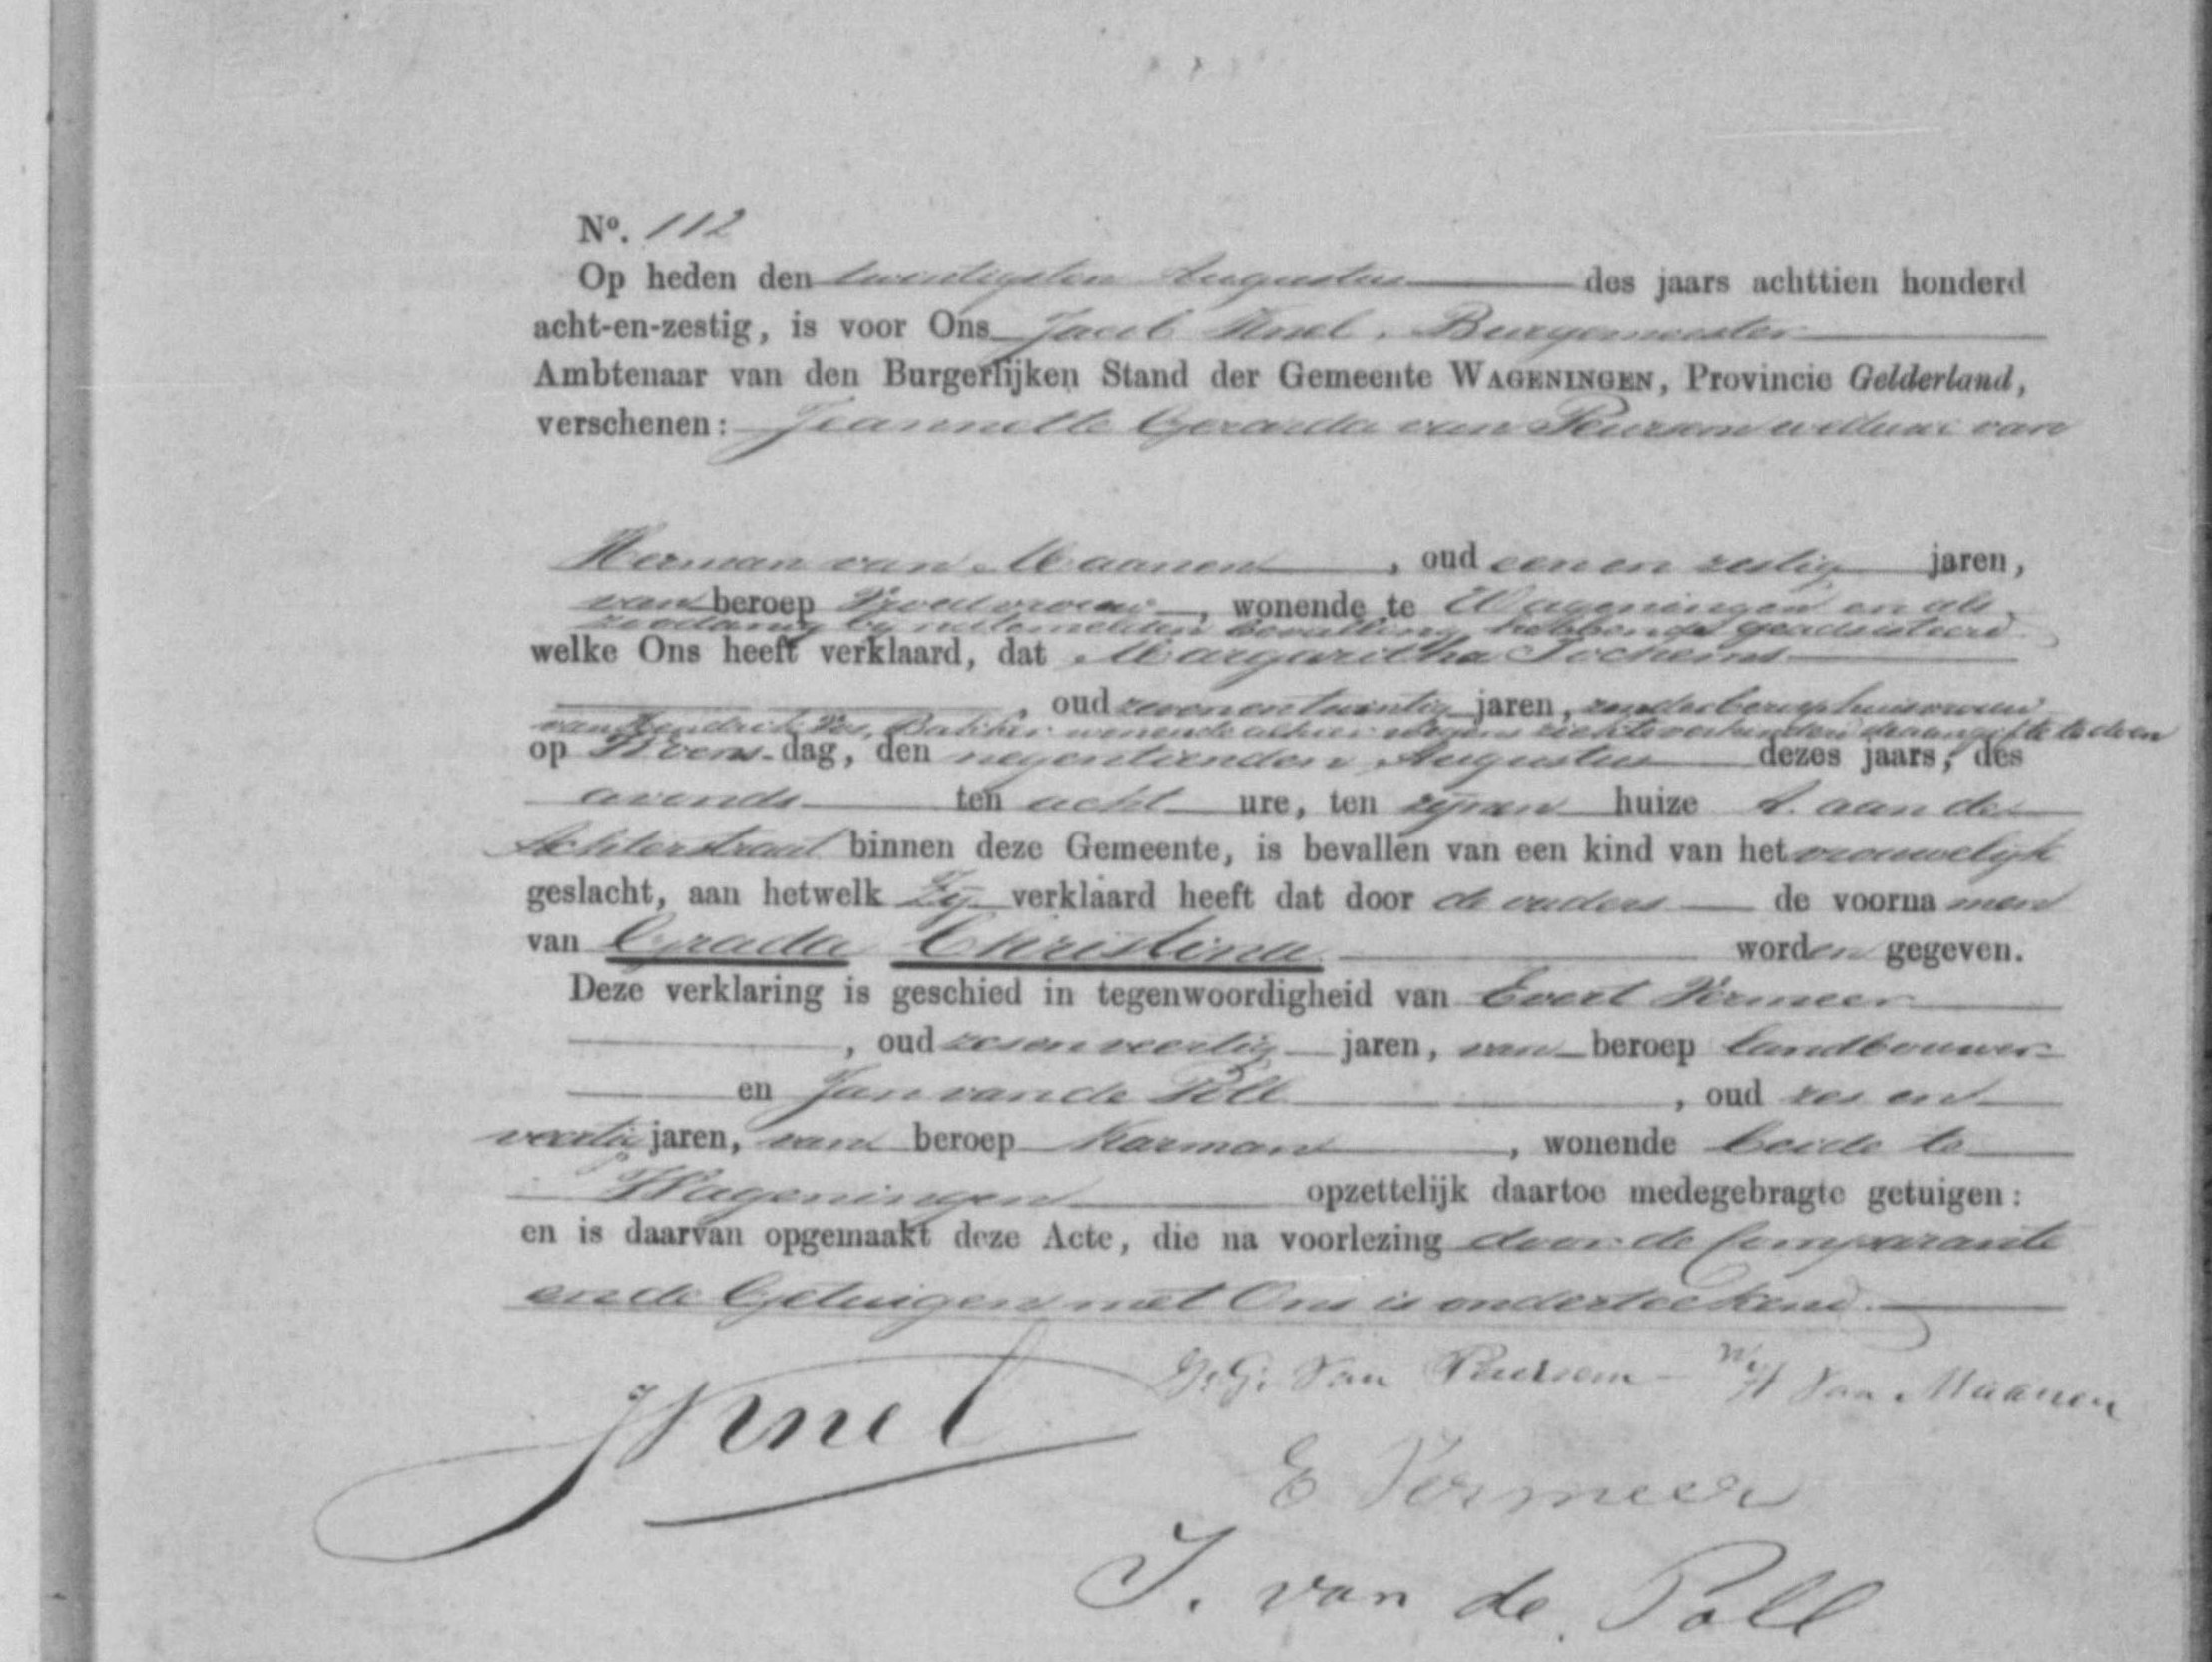 Nº. 112
Op heden den twintigsten Augustus des jaars achttien honderd
acht-en-zestig, is voor Ons Jacob Knel, Burgemeester
Ambtenaar van den Burgerlijken Stand der Gemeente WAGENINGEN, Provincie Gelderland,
verschenen: Jeannette Gerarda van Peursem weduwe van
Herman van Maanen, oud eenen zestig jaren,
van beroep Vroedvrouw, wonende te Wageningen en als
zoodanig bij natemelden bevalling hebbende geadsisteerd
welke Ons heeft verklaard, dat Margaretha Jochems
, oud zevenentwintig jaren, zonder beroep huisvrouw
van Hendrik Bakker wonende alhier wegens ziekte verhinderd de aangifte te doen
op Woensdag, den negentienden Augustus dezes jaars, des
avonds ten acht ure, ten zijnen huize A. aan de
Achterstraat binnen deze Gemeente, is bevallen van een kind van het vrouwelijk
geslacht, aan hetwelk Zij verklaard heeft dat door de ouders de voornamen
van Grada Christina worden gegeven.
Deze verklaring is geschied in tegenwoordigheid van Evert Vermeer
, oud zesenveertig jaren, van beroep landbouwer
en Jan van de Poll, oud zes en
veertig jaren, van beroep Karman, wonende beide te
Wageningen opzettelijk daartoe medegebragte getuigen:
en is daarvan opgemaakt deze Acte, die na voorlezing door de Comparante
en de Getuigen met Ons is onderteekend.
JKnel
J. G. Van Peursem - W H Van Maanen
E Vermeer
J. van de Poll